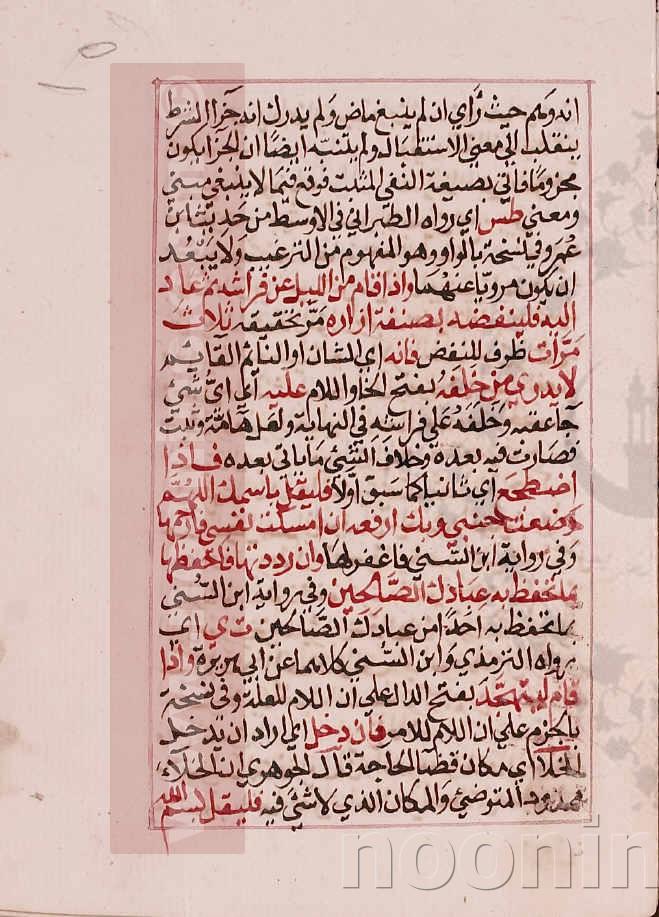 انه وهم حيث رأي ان لم ينبغ ماض ولم يدرك انه جزا الشرط
ينقلب الي معني الاستقبال ولم يتنبه ايضا ان الجزا يكون
مجزوما فاتي بصيغة النفي المثبت فوقع فيما لا ينبغي مبني
ومعني طس اي رواه الطبراني في الاوسط من حديث ابن
عمر وفي نسخة بالواو وهو المفهوم من الترغيب ولا يبعد
ان يكون مرويا عنهما واذا قام من الليل عن فراشه ثم عاد
اليه فلينفضه بصنفة ازاره مر تحقيقه ثلاث
مرات ظرف للنفض فانه اي الشان او النائم القائم
لا يدري من خلفه بفتح الخا واللام عليه اي اي شئ
جا عقبه وخلفه علي فراشه في النهاية ولعل هامة دبت
فصارت فيه بعده وخلاف الشئ ما ياتي بعده فاذا
اضطجع اي ثانيا كما سبق اولا فليقل باسمك اللهم
وضعت جنبي وبك ارفعه ان امسكت نفسي فارحمها
وفي رواية ابن السني فاغفر لها وان رددتها فاحفظها
بما تحفظ به عبادك الصالحين وفي رواية ابن السني
بما تحفظ به احدا من عبادك الصالحين ت ي اي
رواه الترمذي وابن السني كلاهما عن ابي هريرة واذا
قام ليتهجد بفتح الدال علي ان اللام للعلة وفي نسخة
بالجزم علي ان اللام للامر فان دخل اي اراد ان يدخل
الخلا اي مكان قضا الحاجة قال الجوهري ان الخلاء
ممدود المتوضئ والمكان الذي لا شئ فيه فليقل بسم الله
noonin